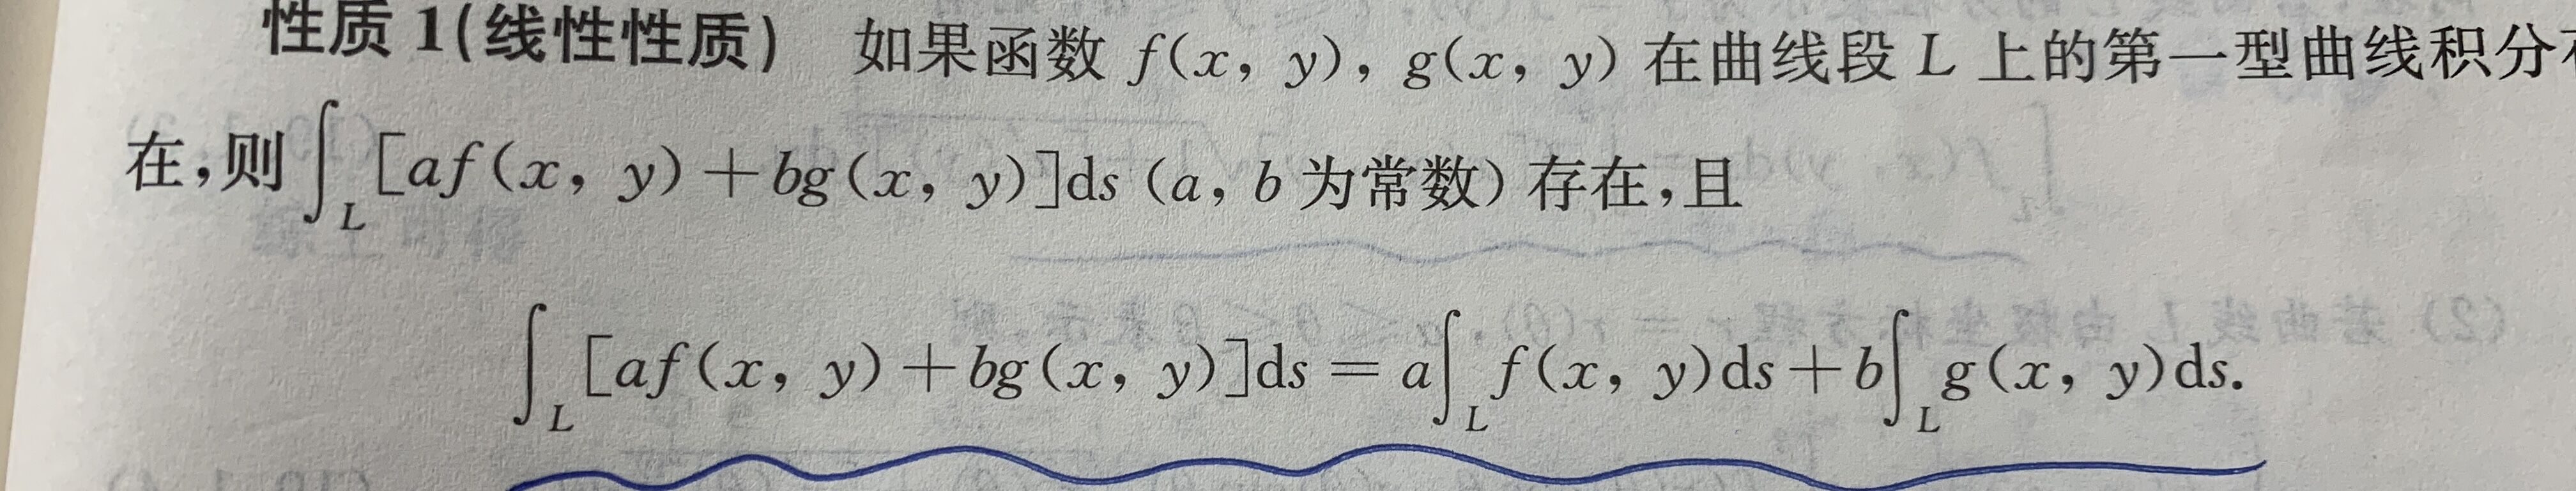 性质 1(线性性质) 如果函数 f(x, y), g(x, y) 在曲线段 L 上的第一型曲线积分
在,则∫_L [af(x, y)+bg(x, y)]ds (a, b 为常数) 存在,且
∫_L [af(x, y)+bg(x, y)]ds = a∫_L f(x, y)ds+b∫_L g(x, y)ds.